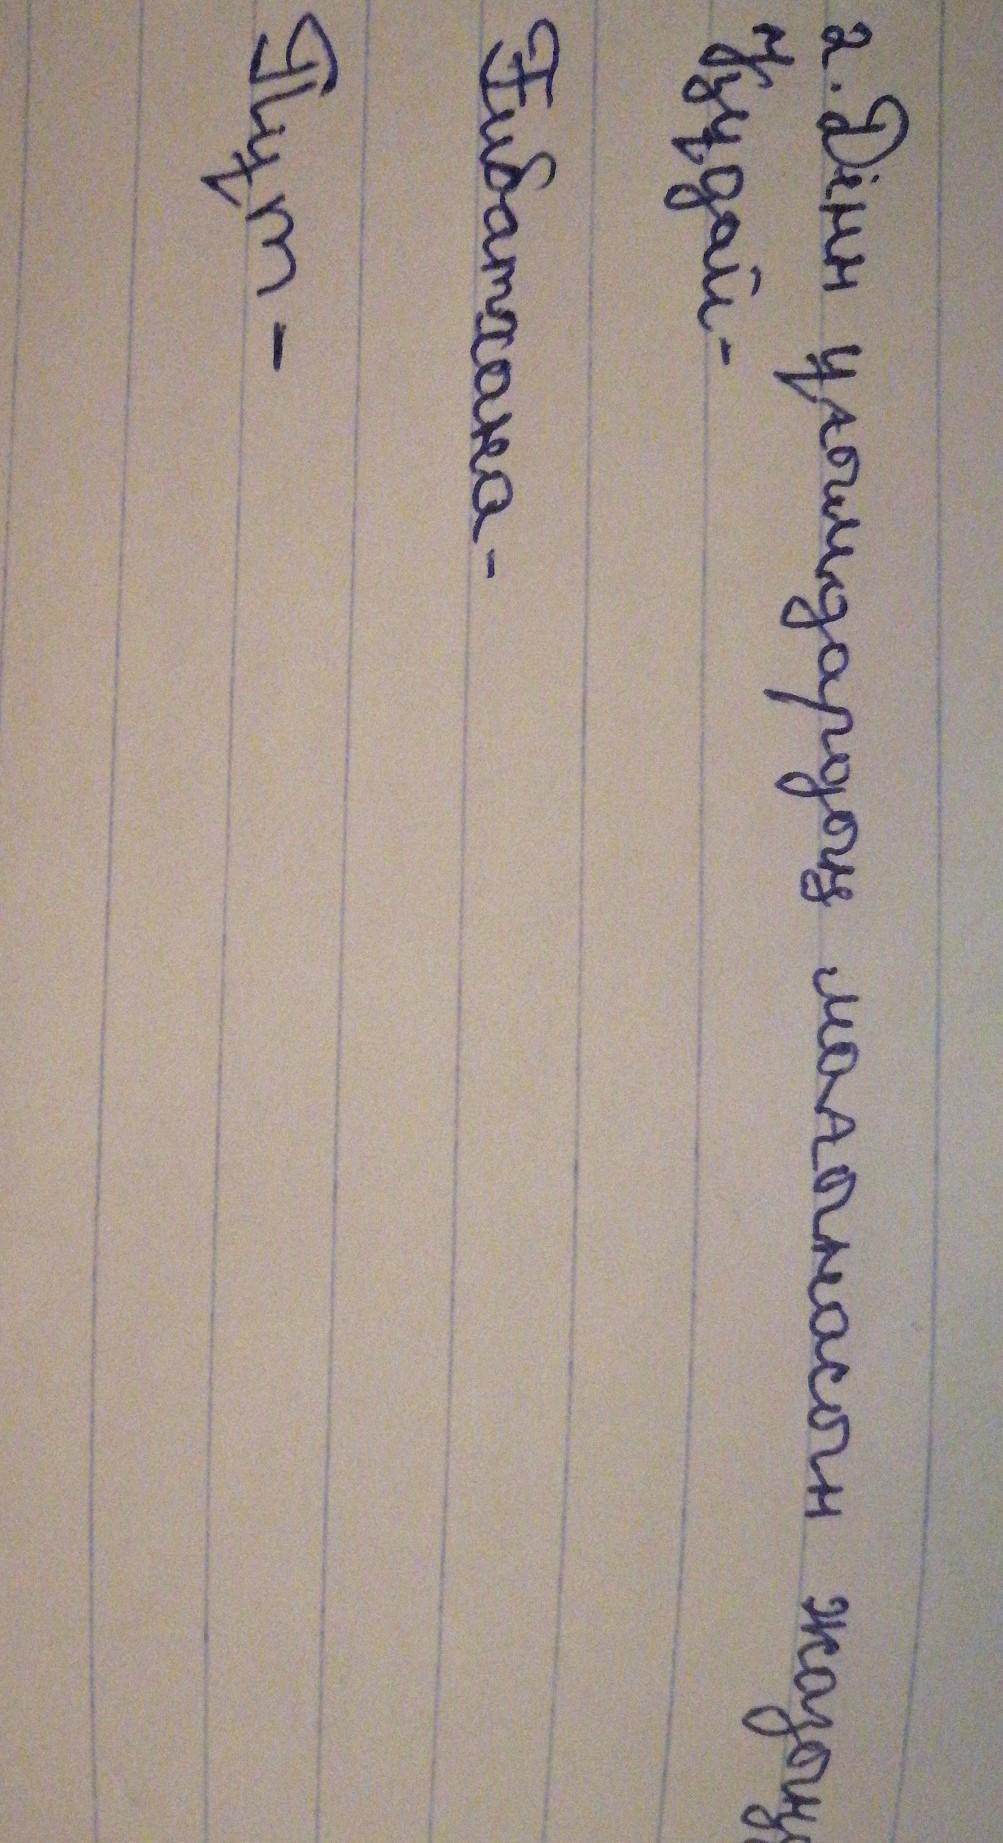 2. Діни ұғымдардың мағынасын жазың
Құдай -
Ғибатхана -
Пұт -